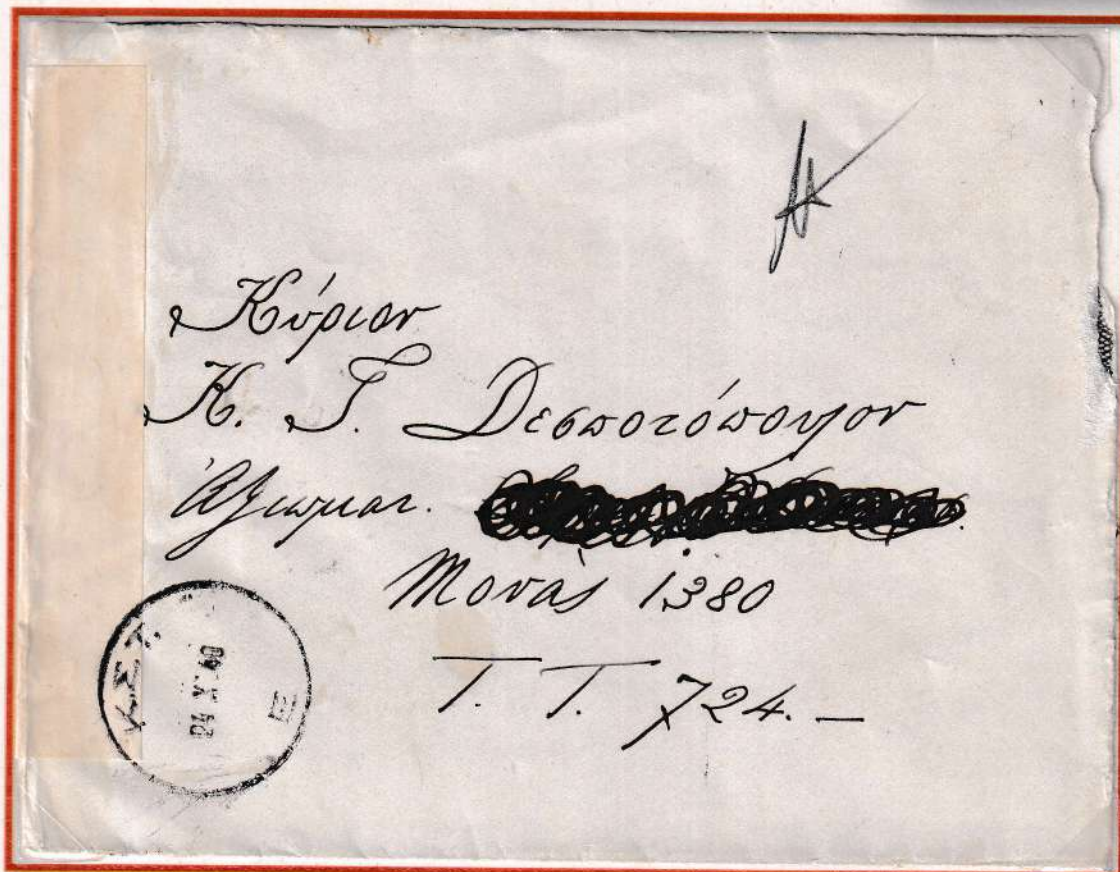 Κύριον
Κ. Γ. Δεσποτόπουλον
Ἀξιωματ.
Μονὰς 1380
Τ. Τ. 724. —
Κ.Σ.Τ.
24 Χ 40